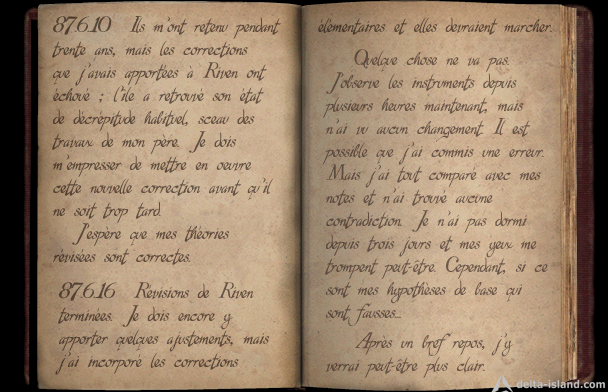 87.6.10 Ils m'ont retenu pendant
trente ans, mais les corrections
que j'avais apportées à Riven ont
échoué ; l'île a retrouvé son état
de décrépitude habituel, sceau des
travaux de mon père. Je dois
m'empresser de mettre en oeuvre
cette nouvelle correction avant qu'il
ne soit trop tard.
J'espère que mes théories
révisées sont correctes.
87.6.16 Révisions de Riven
terminées. Je dois encore y
apporter quelques ajustements, mais
j'ai incorporé les corrections
élémentaires et elles devraient marcher.
Quelque chose ne va pas.
J'observe les instruments depuis
plusieurs heures maintenant, mais
n'ai vu aucun changement. Il est
possible que j'ai commis une erreur.
Mais j'ai tout comparé avec mes
notes et n'ai trouvé aucune
contradiction. Je n'ai pas dormi
depuis trois jours et mes yeux me
trompent peut-être. Cependant, si ce
sont mes hypothèses de base qui
sont fausses...
Après un bref repos, j'y
verrai peut-être plus clair.
delta-island.com